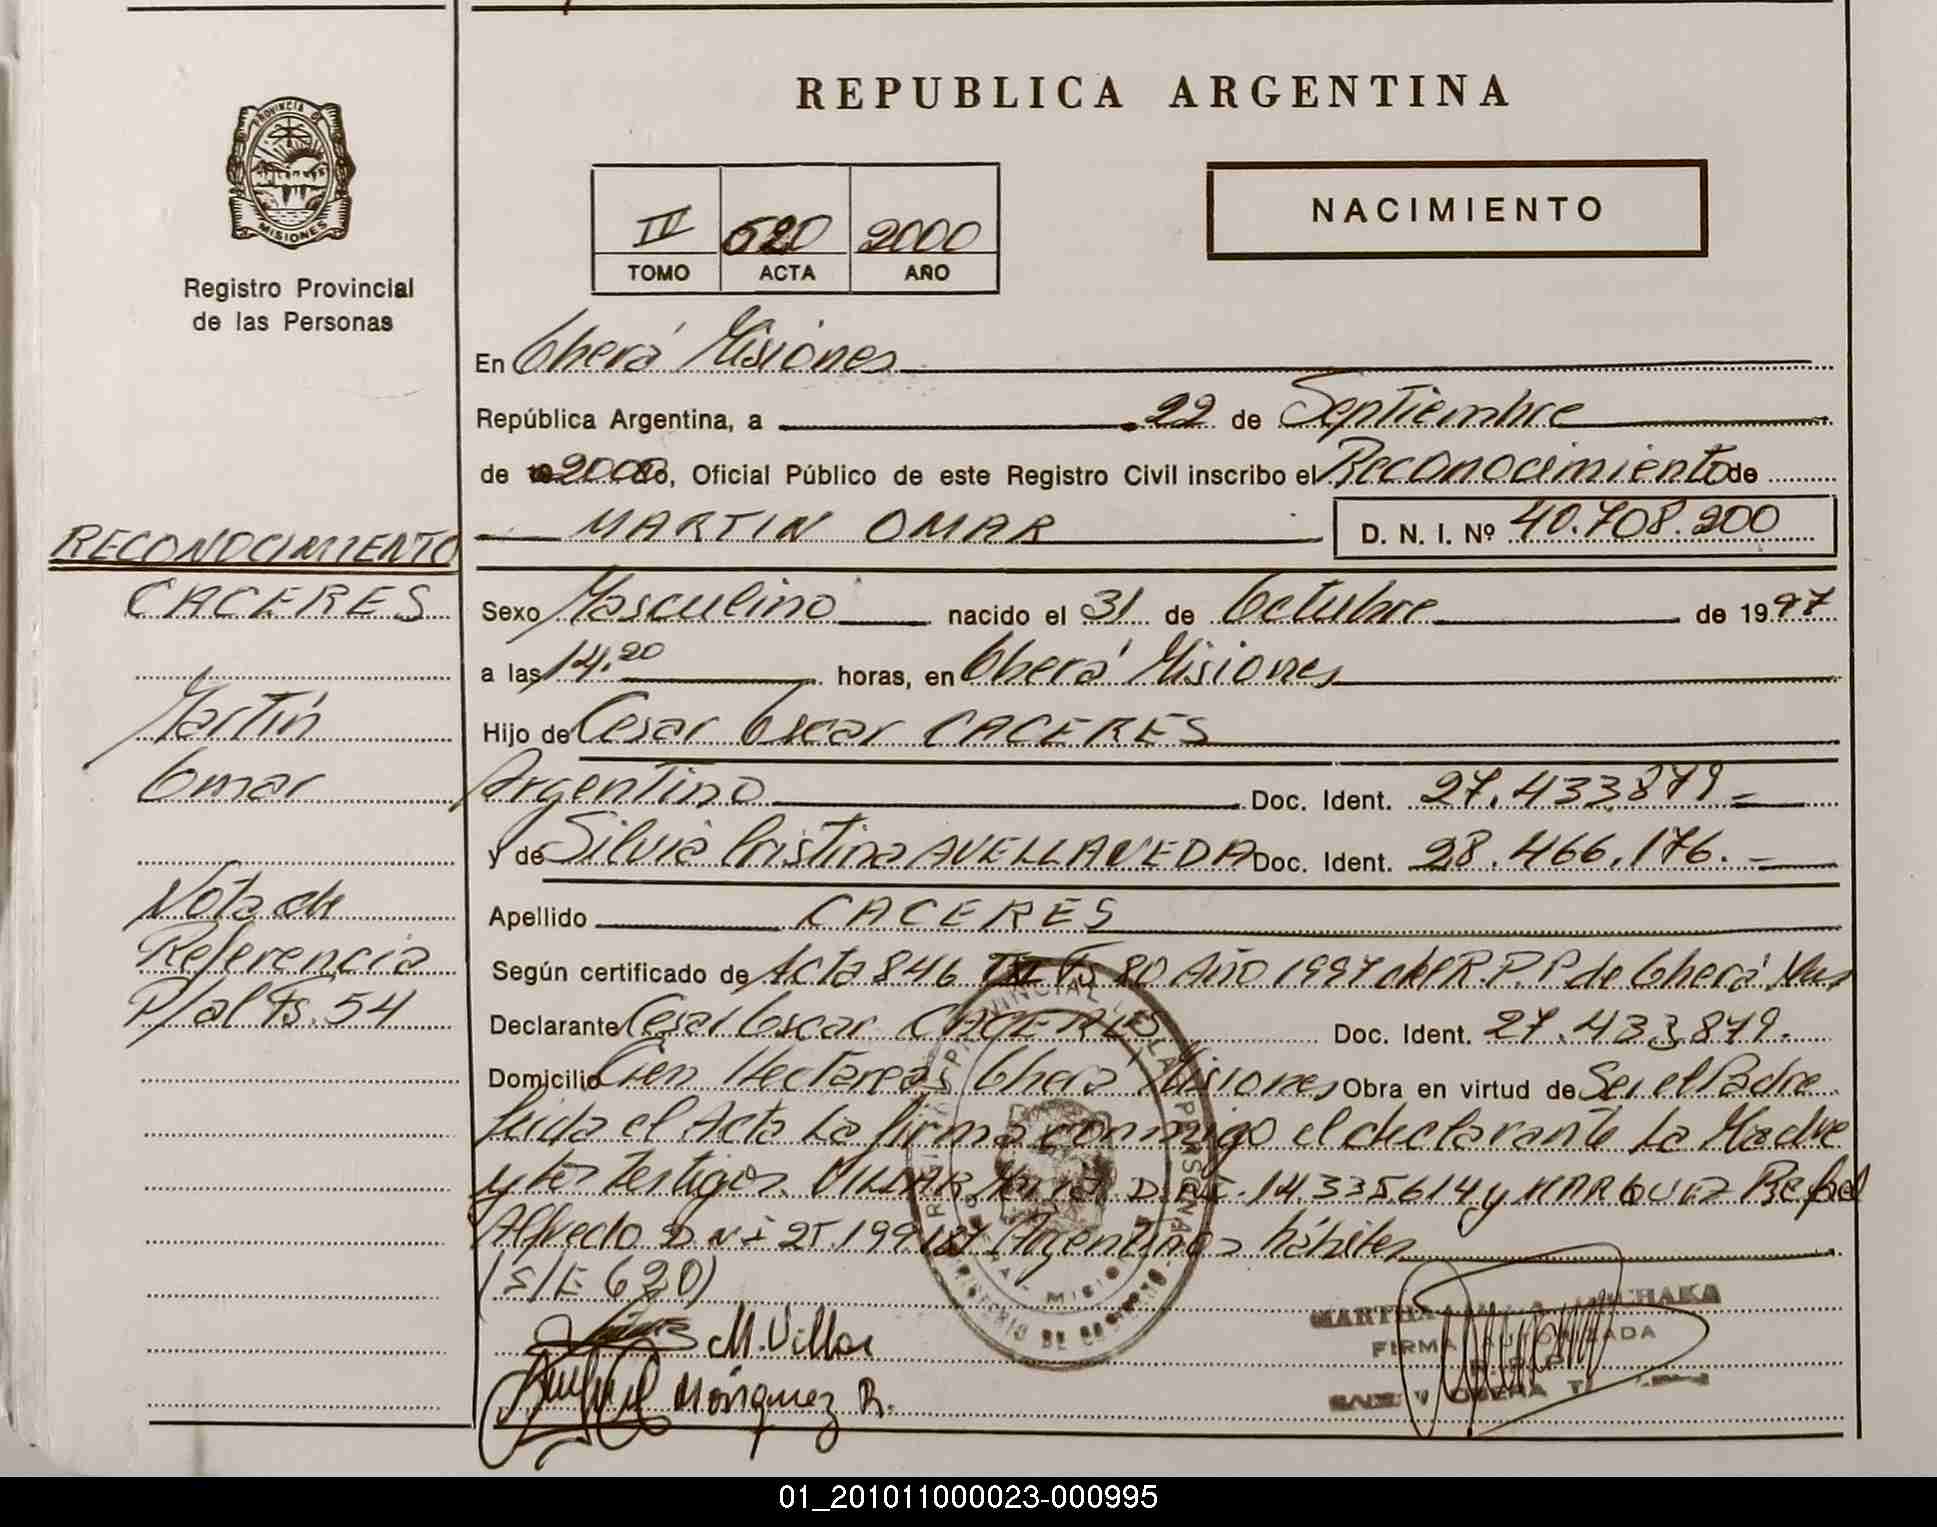 REPUBLICA ARGENTINA
PROVINCIA DE
MISIONES
Registro Provincial
de las Personas
II 620 2000
TOMO ACTA AÑO
NACIMIENTO
En Oberá Misiones
República Argentina, a 22 de Septiembre
de 2000 , Oficial Público de este Registro Civil inscribo el Reconocimiento de
MARTIN OMAR D. N. I. Nº 40.708.200
Sexo Masculino nacido el 31 de Octubre de 1997
a las 14.20 horas, en Oberá Misiones
Hijo de Cesar Oscar CACERES
Argentino Doc. Ident. 27.433.879
y de Silvia Cristina AVELLANEDA Doc. Ident. 28.466.176.
Apellido CACERES
Según certificado de Acta 846 Fs 80 Año 1997 del R.P.P de Oberá Mis
Declarante Cesar Oscar CACERES Doc. Ident. 27.433.879.
Domicilio Cien Hectareas Oberá Misiones Obra en virtud de Ser el Padre
Leida el Acta La firma conmigo el declarante La Madre
y los testigos VILLAR D.N.I. 14.335.614 y MARQUEZ Rafael
Alfredo D N I 25.199.187 Argentinos hábiles
(S/E 620)
M. Villar
Márquez R.
MARTHA
FIRMA AUTORIZADA
R.P.P
OBERA
RECONOCIMIENTO
CACERES
Martín
Omar
Nota de
Referencia
P/al Fs. 54
01_201011000023-000995